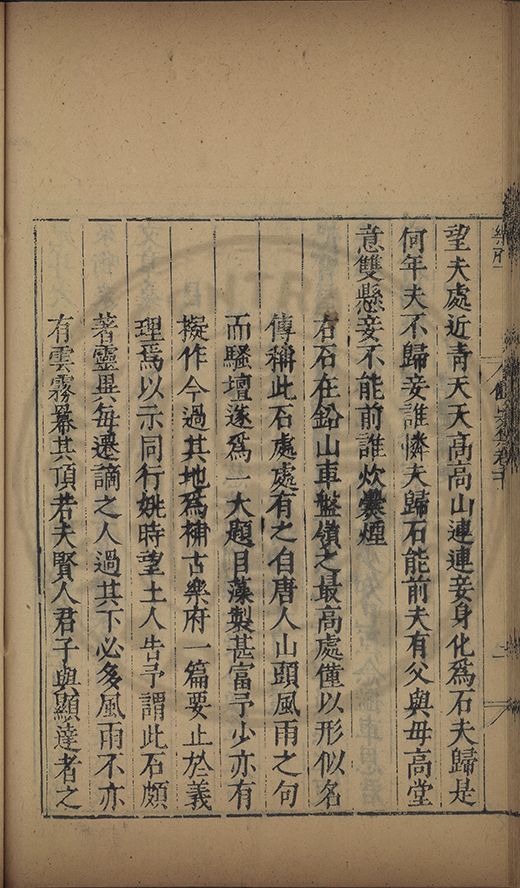 望夫處近靑天天高高山連連妾身化爲石夫歸是
何年夫不歸妾誰憐夫歸石能前夫有父與母高堂
意雙懸妾不能前誰炊爨煙
右石在鉛山車盤嶺之最高處僅以形似名
傳稱此石處處有之自唐人山頭風雨之句
而騷壇遂爲一大題目藻製甚富予少亦有
擬作今過其地爲補古樂府一篇要止於義
理焉以示同行姚時望土人告予謂此石頗
著靈異每遷謫之人過其下必多風雨不亦
有雲霧冪其頂若夫賢人君子與顯達者之